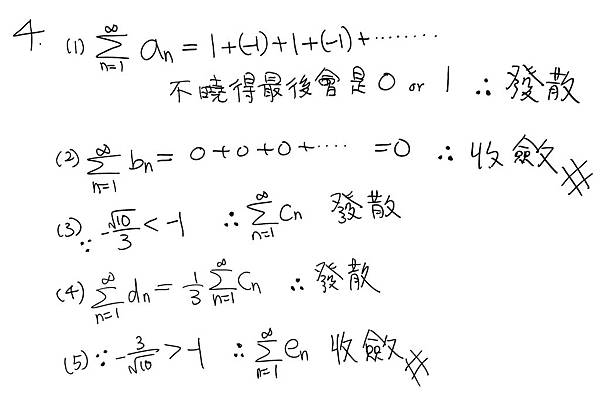 4. (1) ∞∑n=1 an = 1+(-1)+1+(-1)+········
不曉得最後會是 0 or 1 ∴ 發散
(2) ∞∑n=1 bn = 0+0+0+···· =0 ∴ 收斂 #
(3) ∵ -√10/3 < -1 ∴ ∞∑n=1 Cn 發散
(4) ∞∑n=1 dn = 1/3 ∞∑n=1 Cn ∴ 發散
(5) ∵ -3/√10 > -1 ∴ ∞∑n=1 en 收斂 #